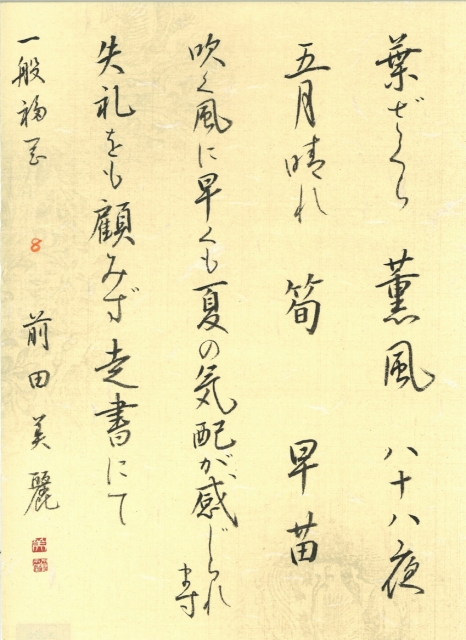 葉ざくら 薫風 八十八夜
五月晴れ 筍 早苗
吹く風に早くも夏の気配が感じられ
ます
失礼をも顧みず走書にて
一般 福岡
8
前田美麗